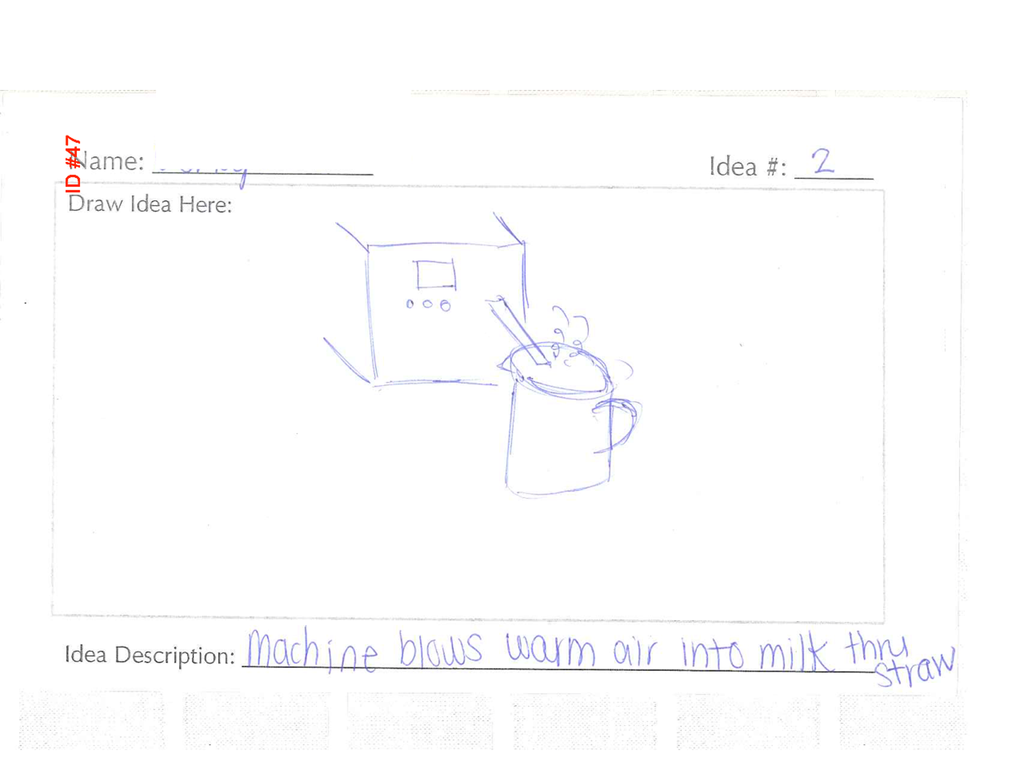 ID #47
Name:
Idea #: 2
Draw Idea Here:
Idea Description: Machine blows warm air into milk thru
straw